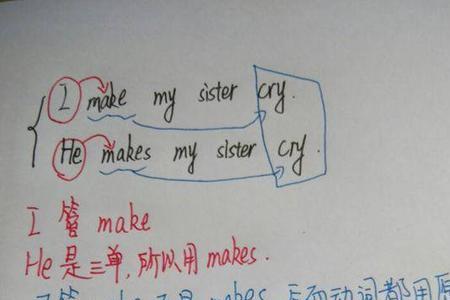 I make my sister cry.
He makes my sister cry.
I 管 make
He 是三单,所以用 makes.
makes 后面动词都用原